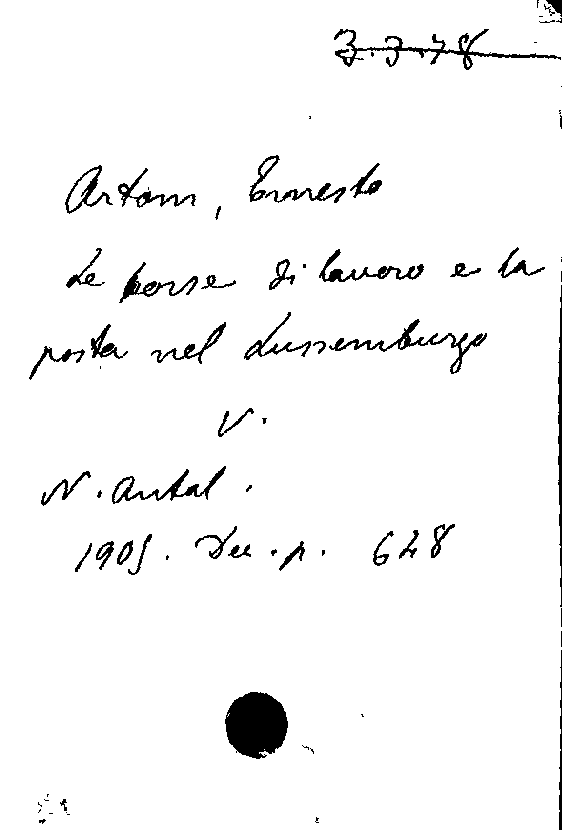 3.3.78
Artom, Ernesto
Le borse di lavoro e la
posta nel Lussemburgo
V.
N. Antal.
1905. Dec. p. 628